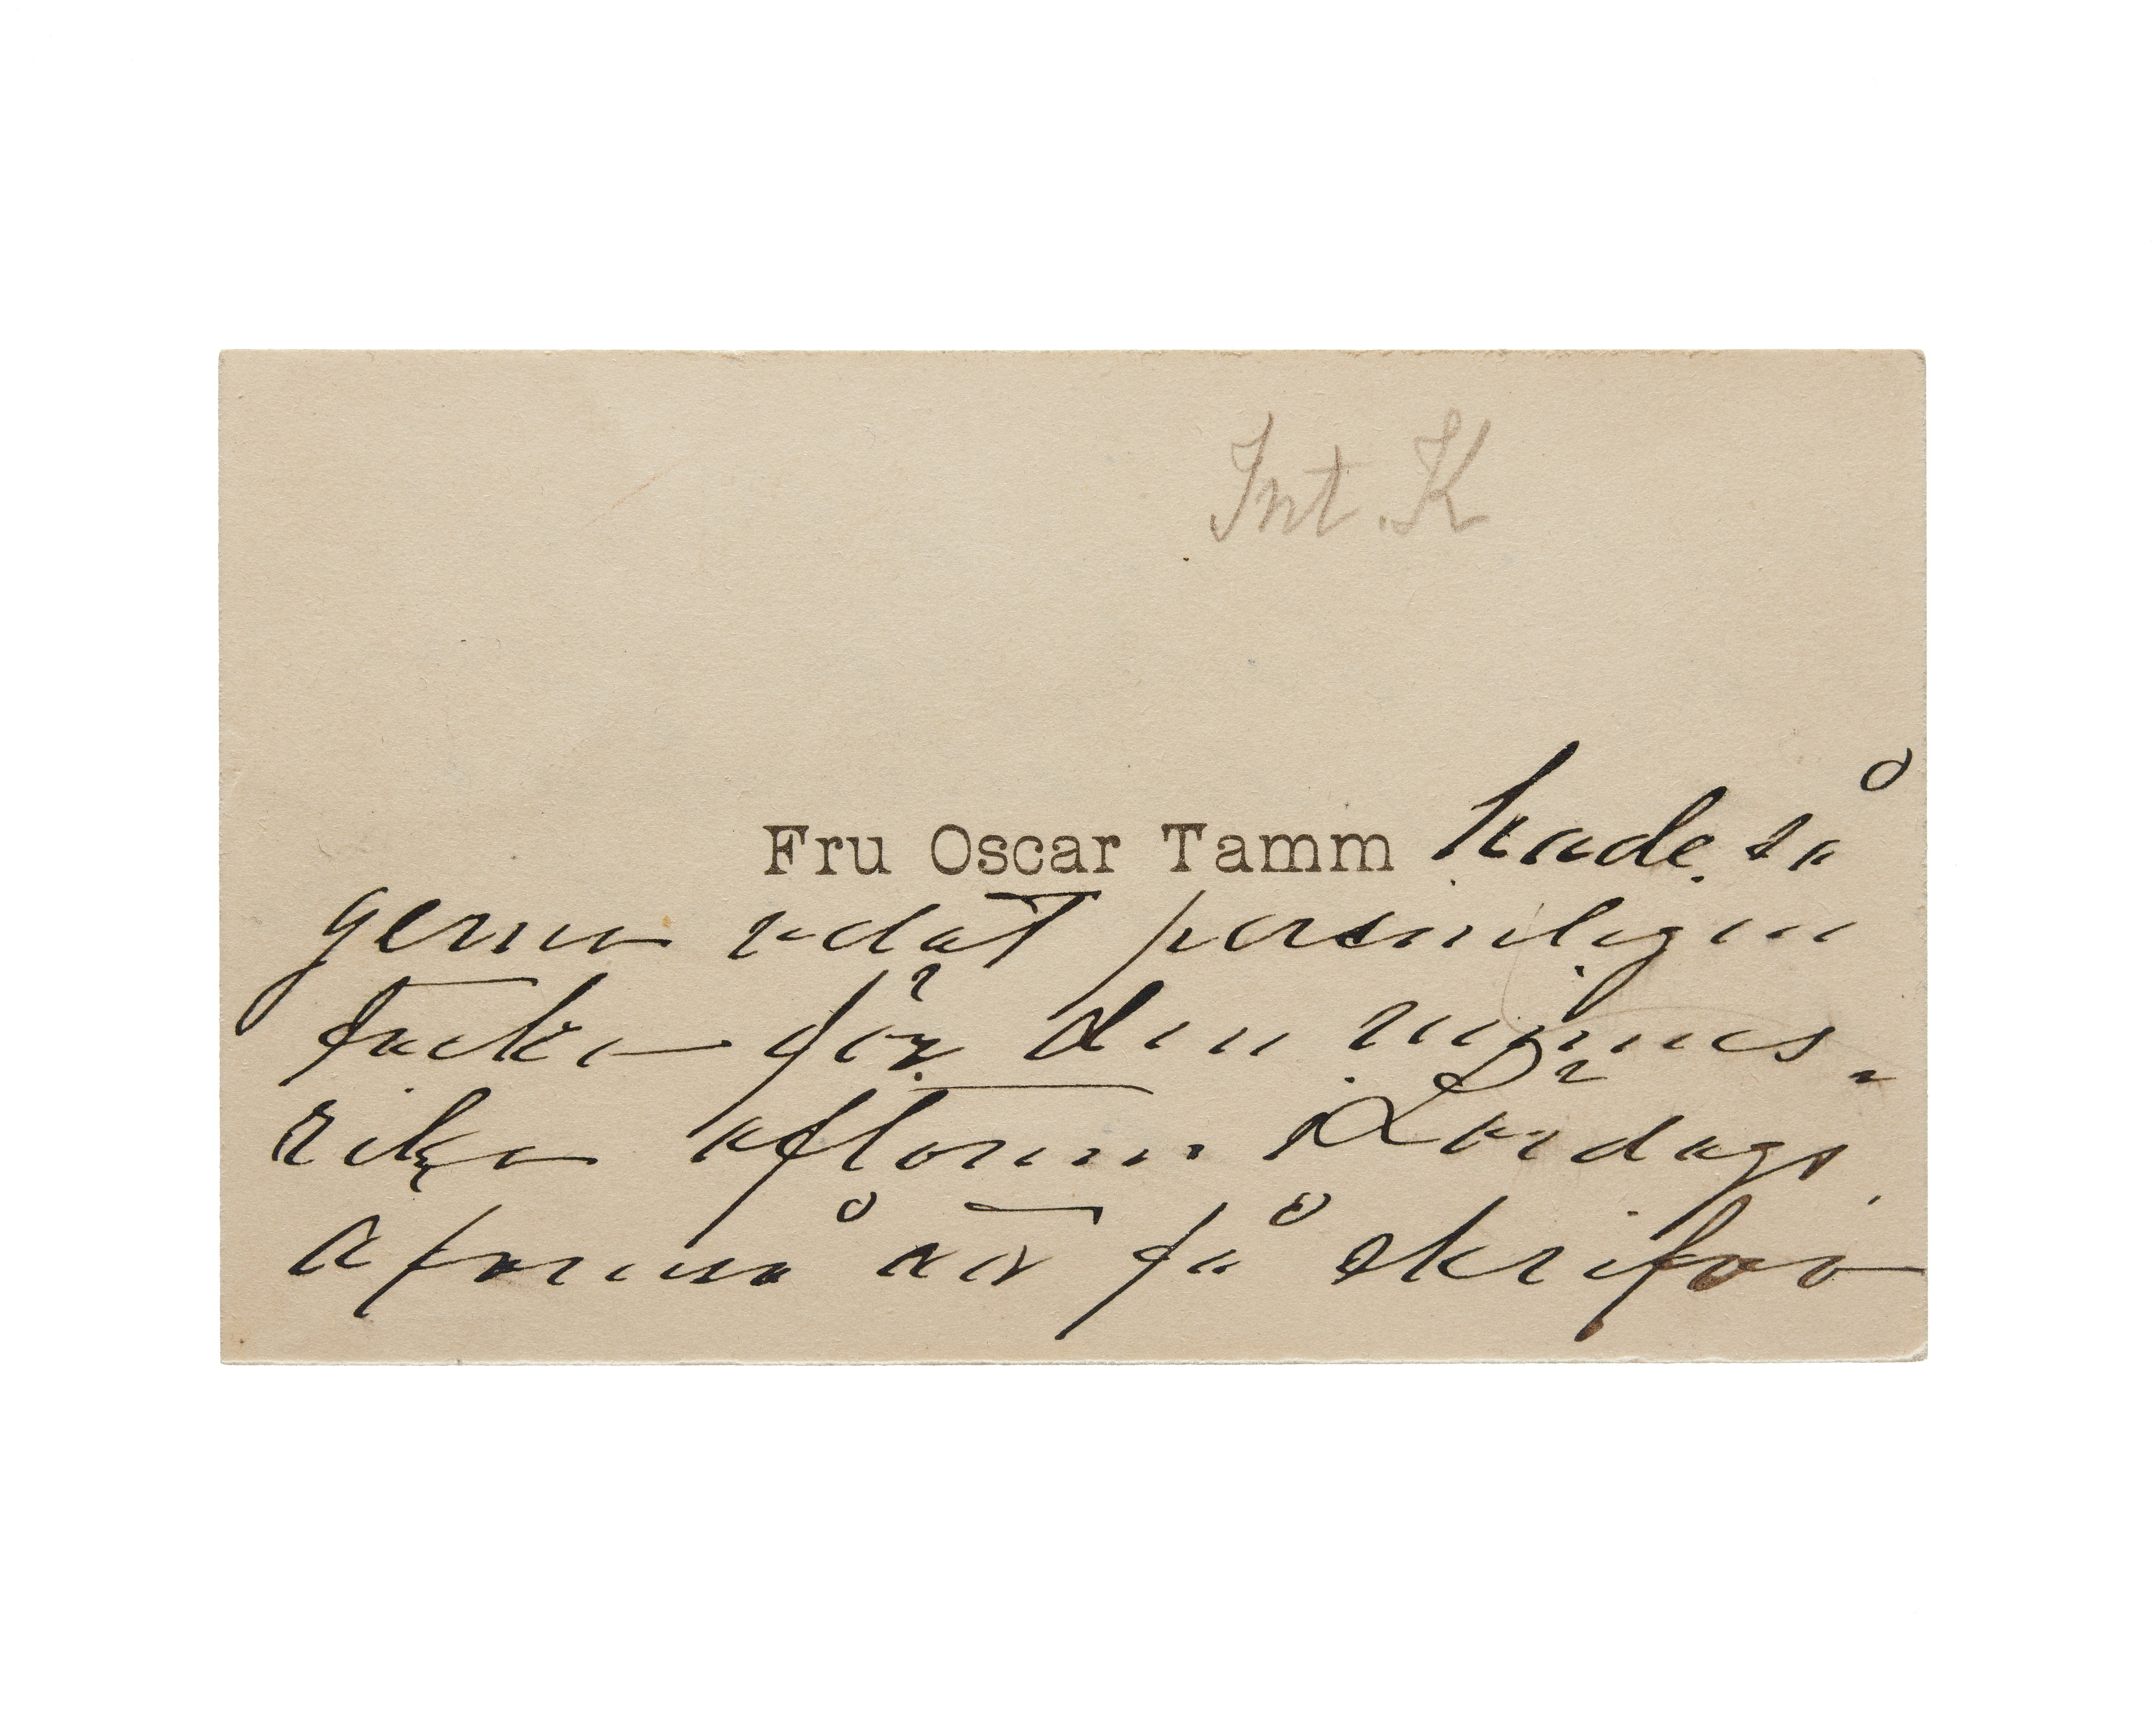 Int. K
Fru Oscar Tamm hade så
gerna velat personligen
tacka för den minnes-
rika aftonen i Lördags,
att få skrifva